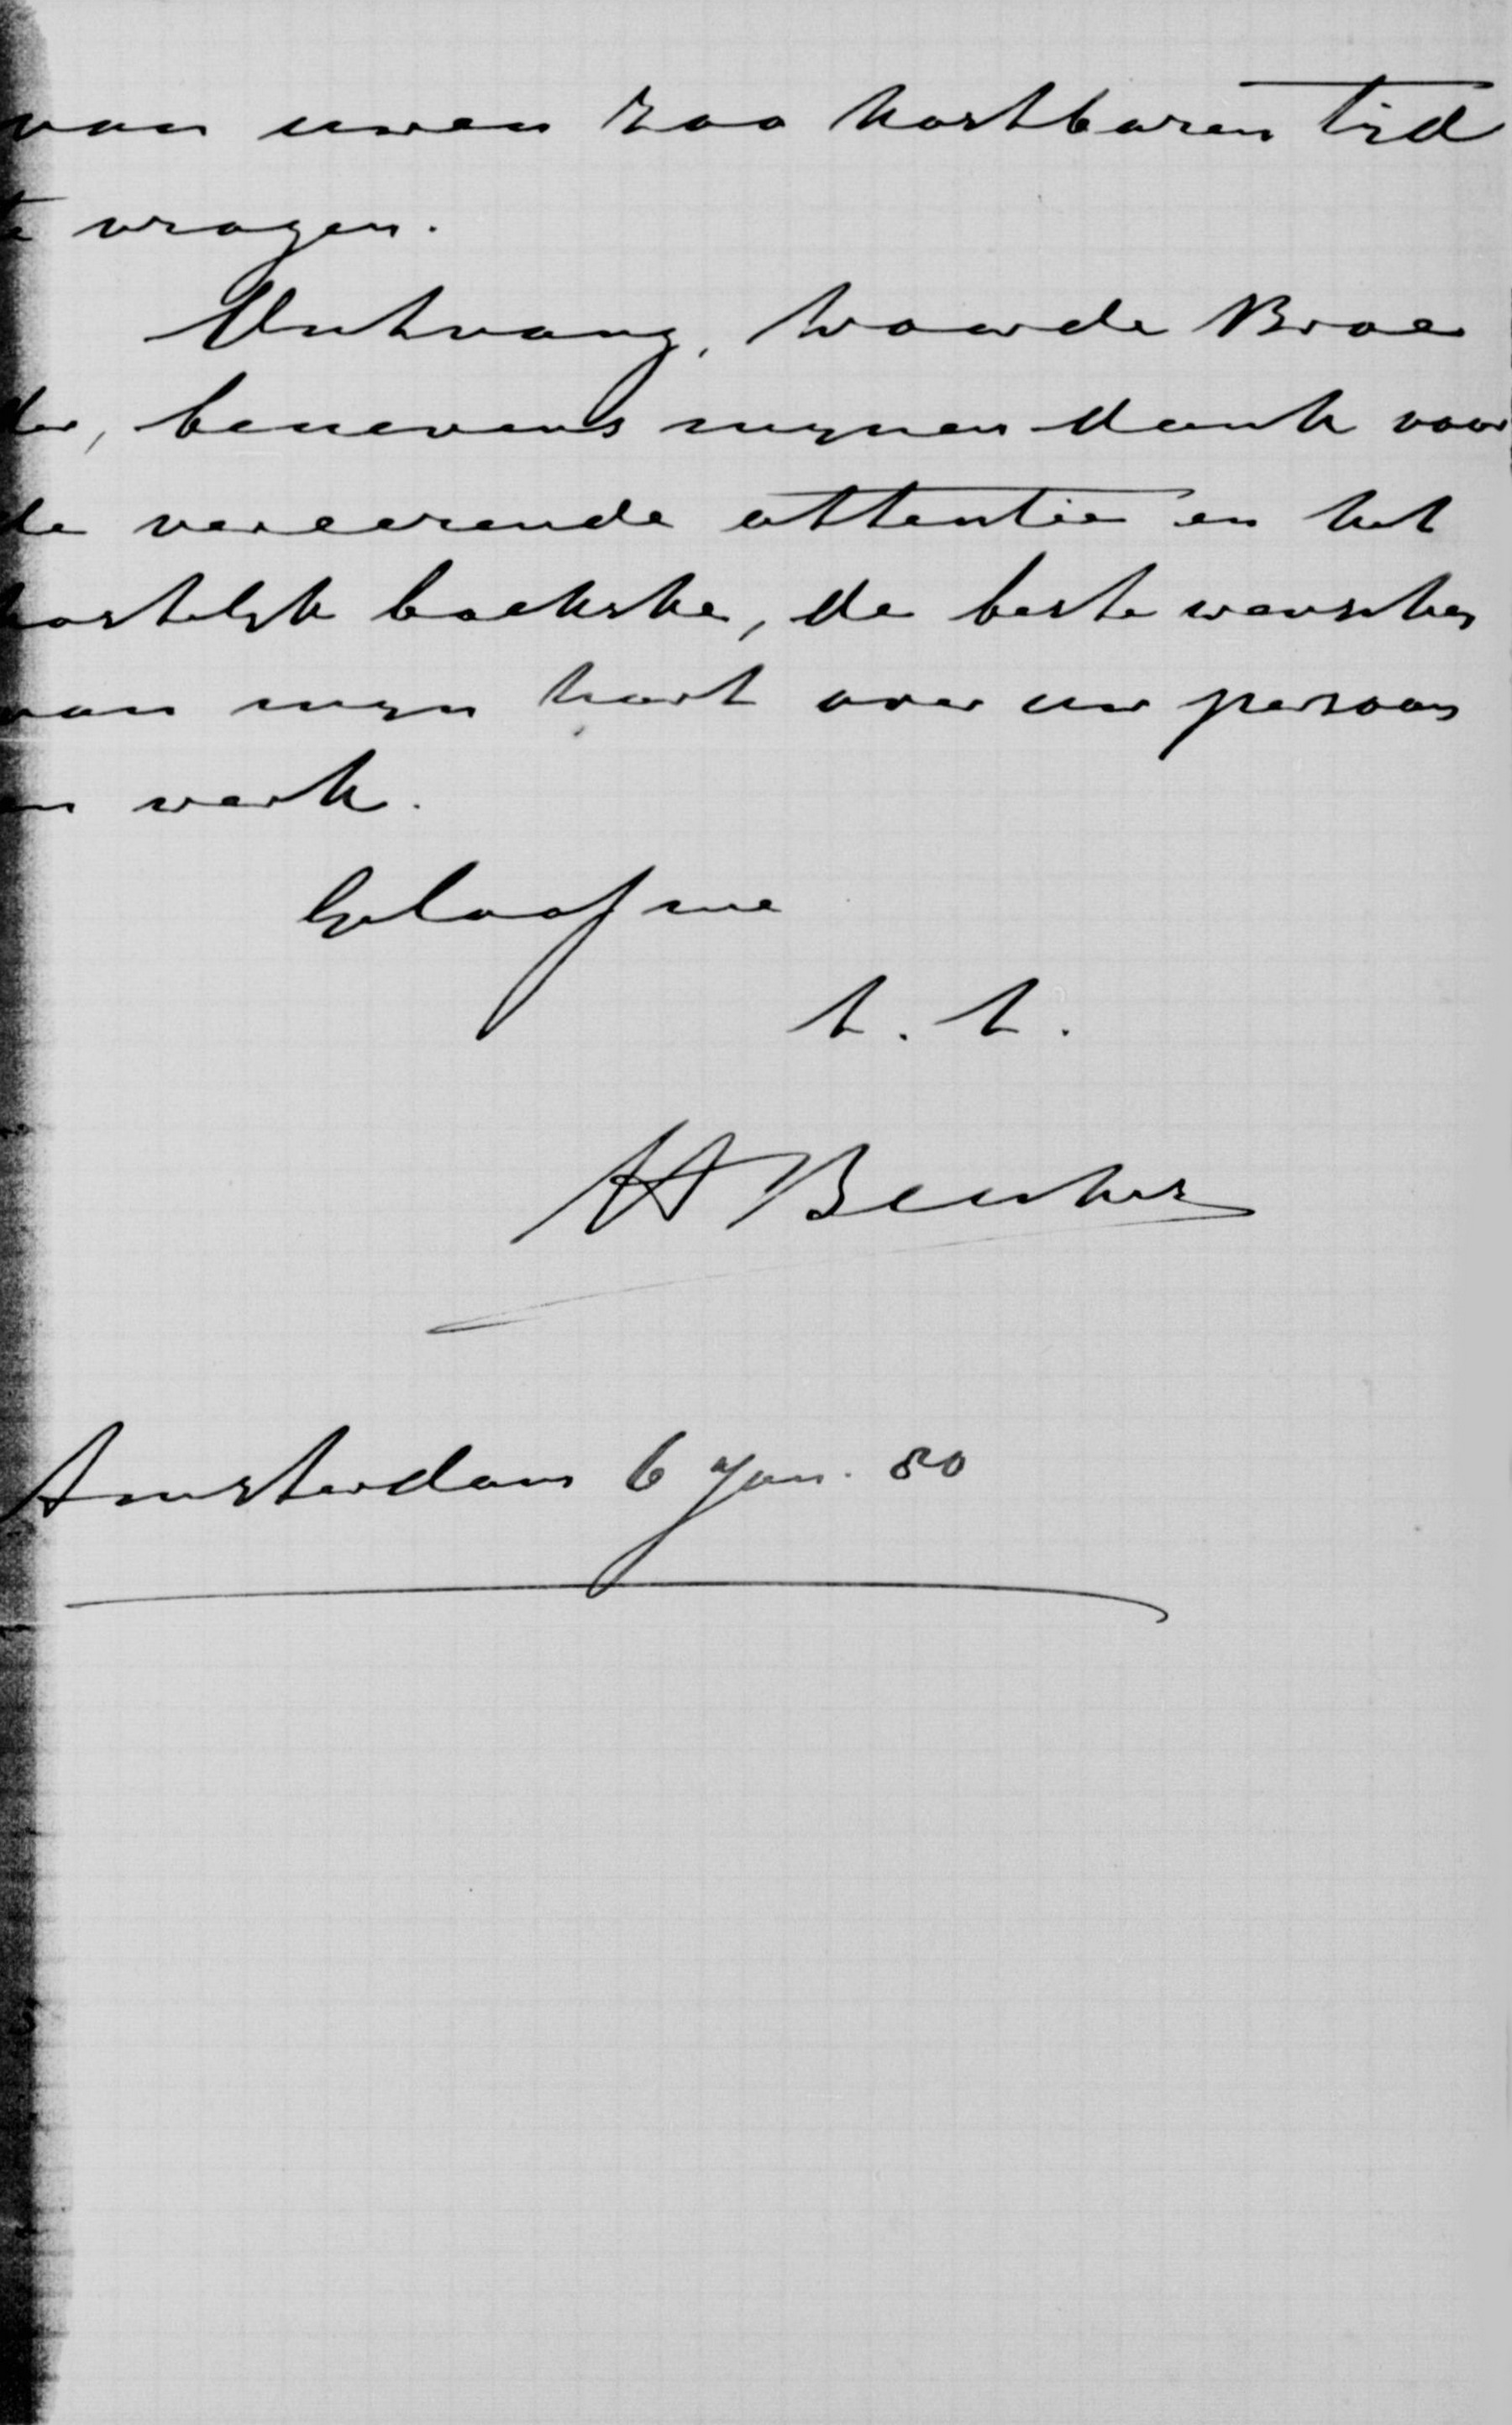 van uwen zoo kostbaren tijd
te vragen.
Ontvang, waarde Broe
der, benevens mijnen dank voor
de vereerende attentie en het
kostelijk boekske, de beste wenschen
van mijn hart over uw persoon
en werk.
Geloof me
t. t.
H Beuker
Amsterdam 6 Jan. 80